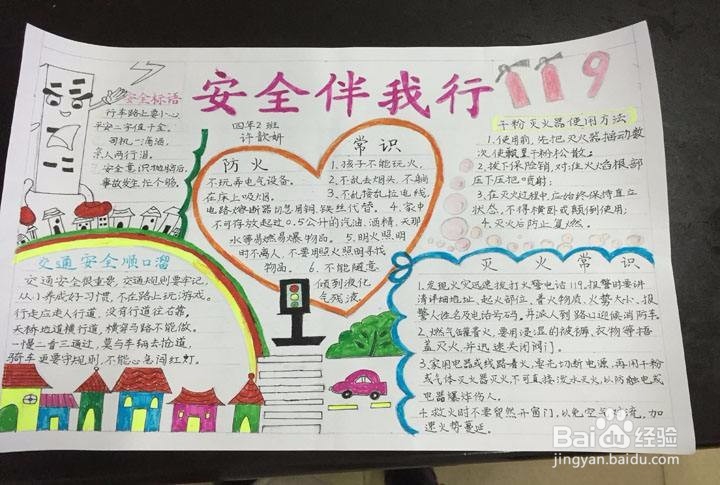 安全伴我行
119
四年2班
许歆妍
安全标语
行车路上要小心
平安二字值千金。
司机一滴酒,
亲人两行泪。
安全意识抛脑后,
事故发生忙个够。
防火
常识
1.孩子不能玩火,
不玩弄电气设备。
2.不乱丢烟头,不躺
在床上吸烟。
3.不乱接乱拉电线,
电路熔断器切忌用铜、铁丝代替。
4.家中
不可存放超过0.5公升的汽油、酒精、天那
水等易燃易爆物品。
5.明火照明
时不离人,不要用明火照明寻找
物品。
6.不能随意
倾倒液化
气残液。
干粉灭火器使用方法
1.使用前,先把灭火器摇动数
次,使瓶里干粉松散;
2.拔下保险销,对准火焰根部
压下压把喷射;
3.在灭火过程中,应始终保持直立
状态,不得横卧或颠倒使用;
4.灭火后防止复燃。
交通安全顺口溜
交通安全很重要,交通规则要牢记,
从小养成好习惯,不在路上玩游戏。
行走应走人行道,没有行道往右靠,
天桥地道横行道,横穿马路不能做,
一慢二看三通过,莫与车辆去抢道。
骑车更要守规则,不能心急闯红灯。
灭火常识
1.发现火灾迅速拨打火警电话119,报警时要讲
清详细地址、起火部位、着火物质、火势大小、报
警人姓名及电话号码,并派人到路口迎候消防车。
2.燃气罐着火,要用浸湿的被褥、衣物等捂
盖灭火,并迅速关闭阀门。
3.家用电器或线路着火,要先切断电源,再用干粉
或气体灭火器灭火,不可直接泼水灭火,以防触电或
电器爆炸伤人。
4.救火时不要贸然开窗门,以免空气对流,加
速火势蔓延。
Baidu百度经验
jingyan.baidu.com